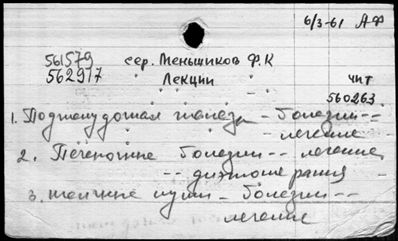 6/3-61 АФ
561579 сер. Меньшиков Ф.К
562917 Лекции чит
560263
1. Поджелудочная железа - болезни --
- лечение
2. Печеночные болезни -- лечение,
-- диэтотерапия
3. желчные пути - болезни --
лечение